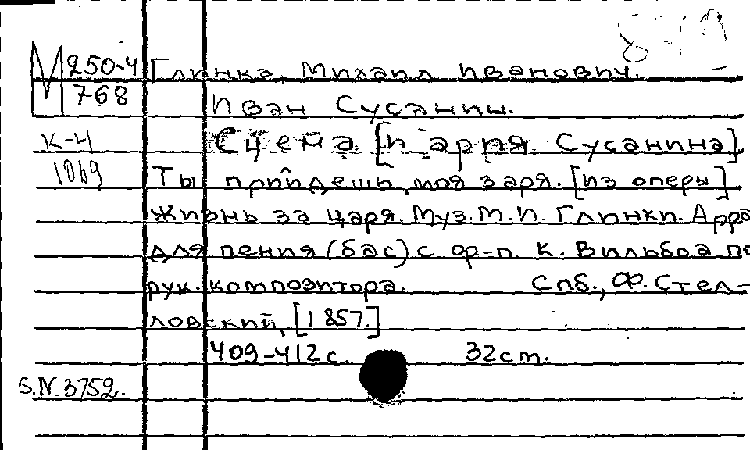 М 250-4 Глинка, Михаил Иванович.
768 Иван Сусанин.
К-4 Сцена [и ария Сусанина]
1069 Ты придешь, моя заря. [из оперы]
Жизнь за царя. Муз. М.И. Глинки. Арра
для пения (бас) с ф-п. К. Вильбоа по
рук. композитора. Спб., Ф. Стел-
ловский, [1857.]
409-412 с. 32 cm.
S.N. 3752.